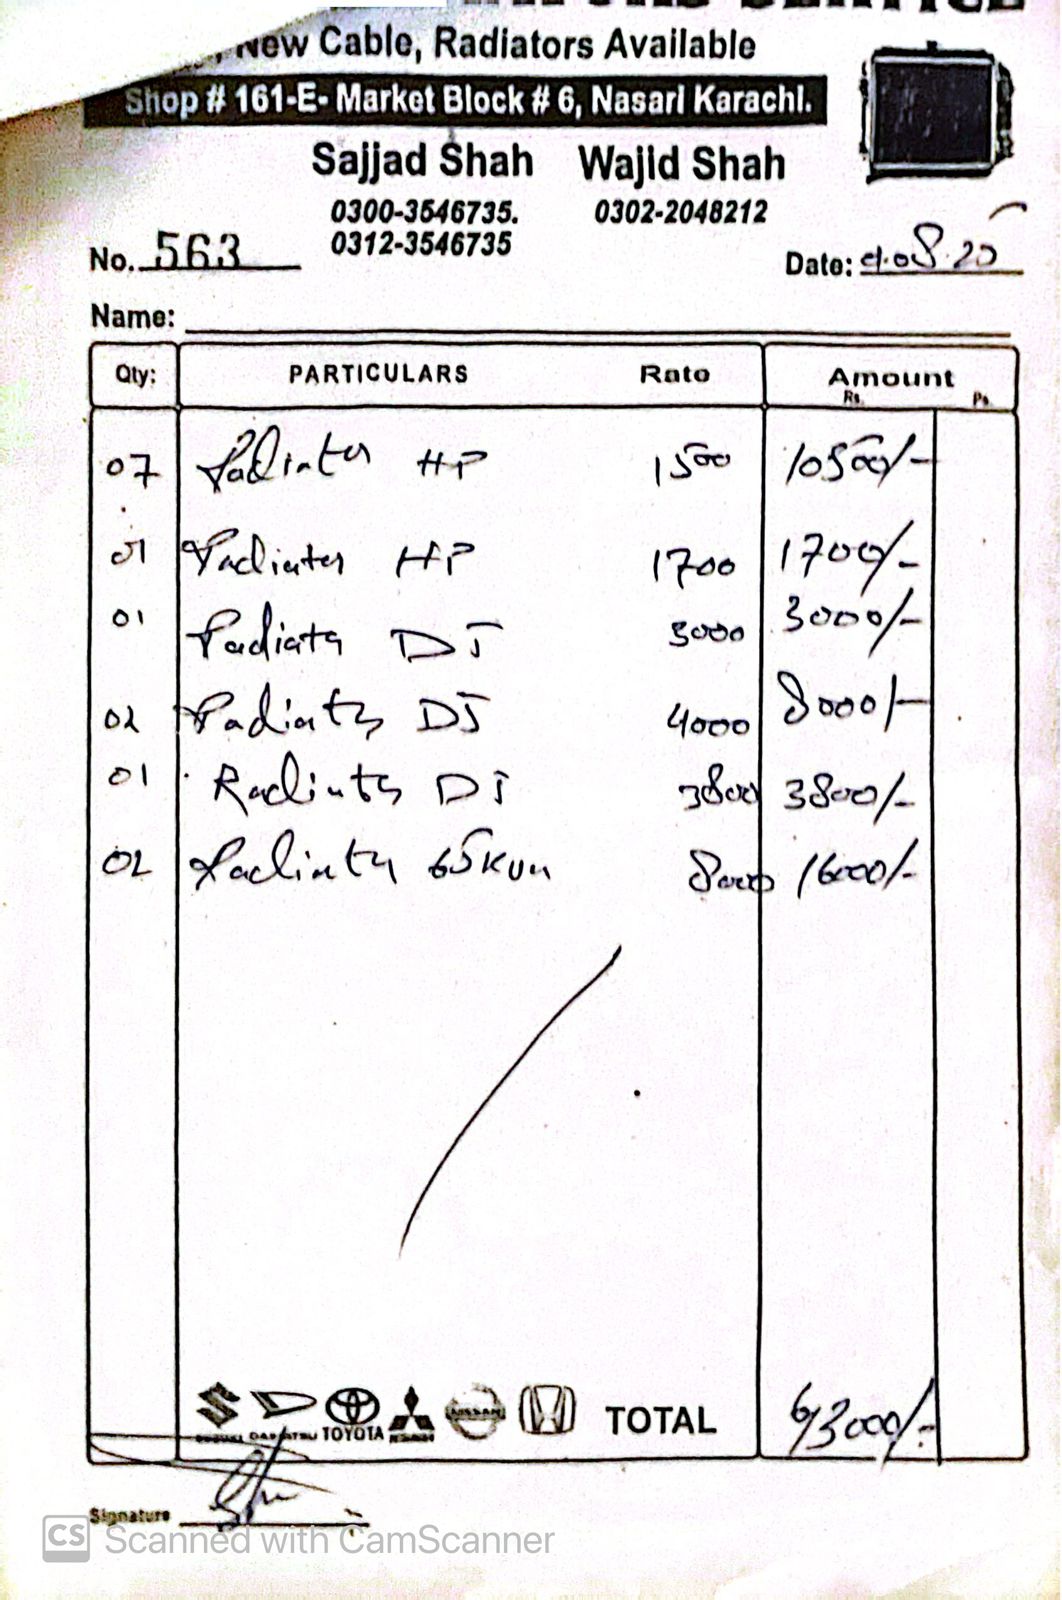 New Cable, Radiators Available
Shop # 161-E- Market Block # 6, Nasari Karachi.
Sajjad Shah Wajid Shah
0300-3546735. 0302-2048212
0312-3546735
No. 563 Date: 9.08.25
Name:
Qty: PARTICULARS Rate Amount
Rs. Ps.
07 Radiator HP 1500 10500/-
01 Radiator HP 1700 1700/-
01 Radiator DJ 3000 3000/-
02 Radiator DJ 4000 8000/-
01 Radiator DJ 3800 3800/-
02 Radiator 65KVA 8000 16000/-
SUZUKI DAIHATSU TOYOTA NISSAN TOTAL 43000/-
Signature
CS Scanned with CamScanner